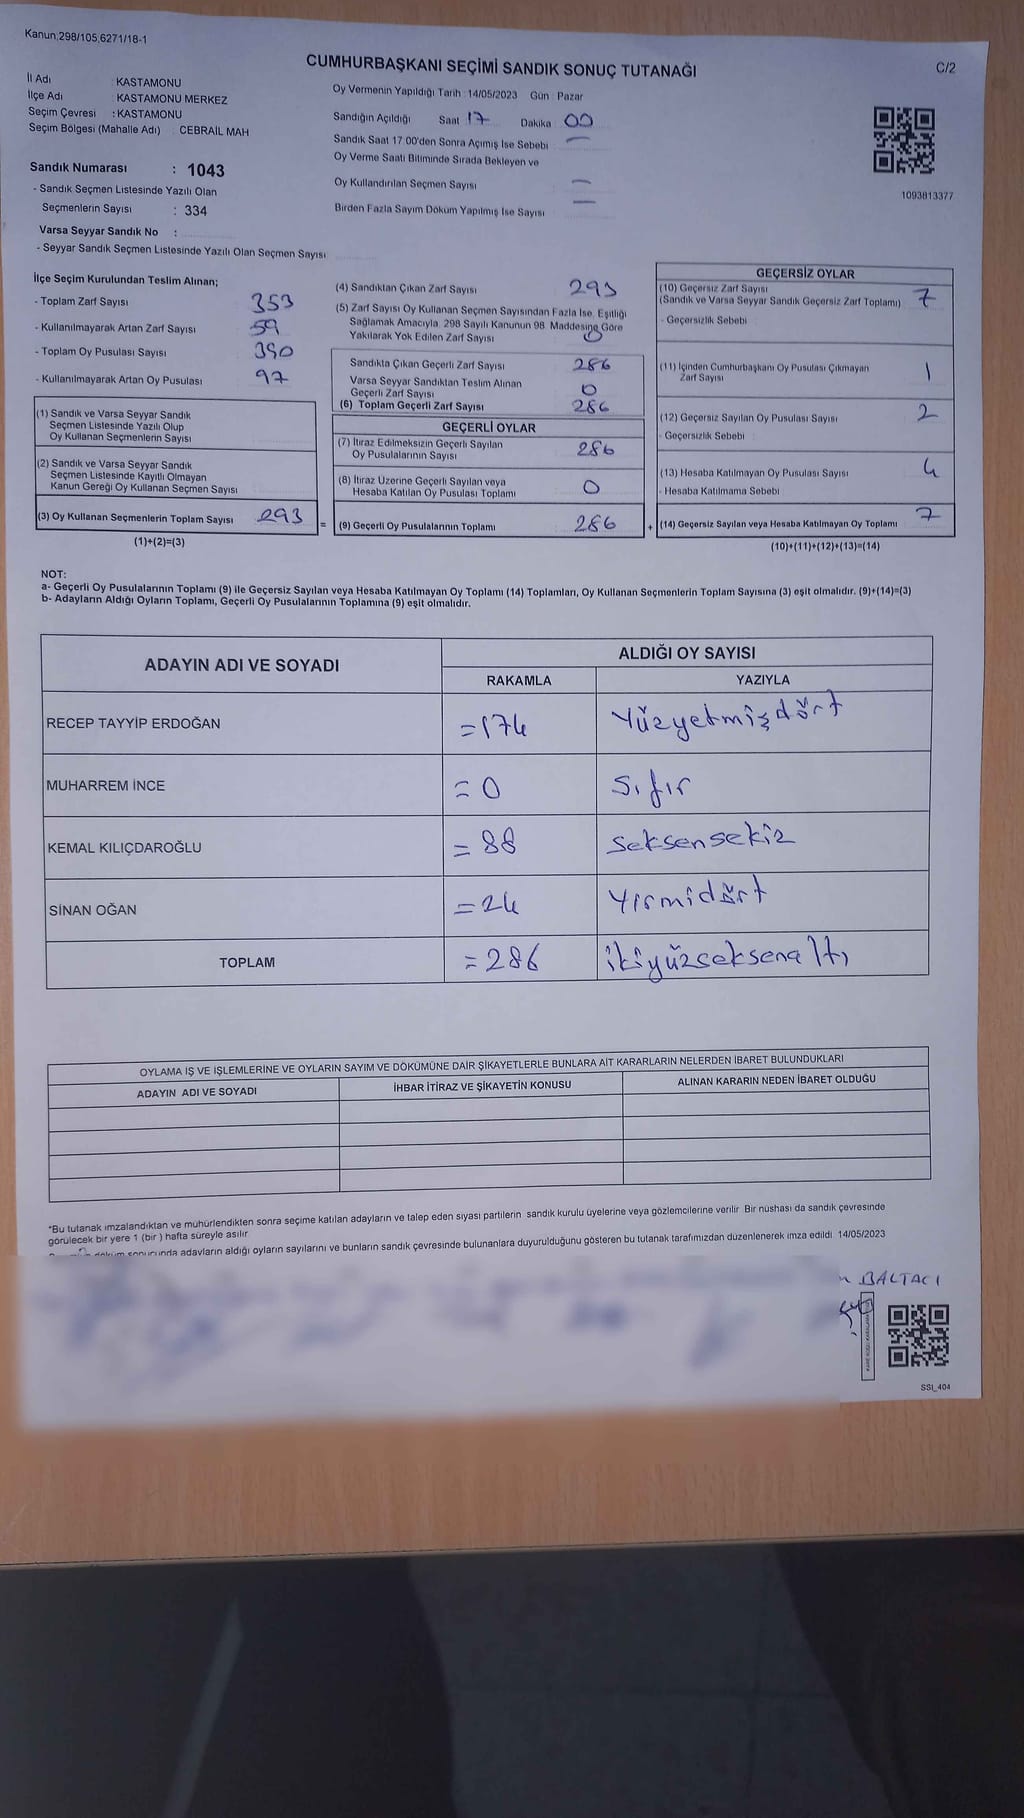 Kanun;298/105,6271/18-1
C/2
CUMHURBAŞKANI SEÇİMİ SANDIK SONUÇ TUTANAĞI
İl Adı : KASTAMONU
İlçe Adı : KASTAMONU MERKEZ
Seçim Çevresi : KASTAMONU
Seçim Bölgesi (Mahalle Adı) : CEBRAİL MAH
Sandık Numarası : 1043
- Sandık Seçmen Listesinde Yazılı Olan
Seçmenlerin Sayısı : 334
Varsa Seyyar Sandık No :
- Seyyar Sandık Seçmen Listesinde Yazılı Olan Seçmen Sayısı
Oy Vermenin Yapıldığı Tarih : 14/05/2023 Gün : Pazar
Sandığın Açıldığı Saat 17 Dakika 00
Sandık Saat 17:00'den Sonra Açılmış İse Sebebi —
Oy Verme Saati Bitiminde Sırada Bekleyen ve
Oy Kullandırılan Seçmen Sayısı —
Birden Fazla Sayım Döküm Yapılmış İse Sayısı —
1093813377
İlçe Seçim Kurulundan Teslim Alınan;
- Toplam Zarf Sayısı 353
- Kullanılmayarak Artan Zarf Sayısı 59
- Toplam Oy Pusulası Sayısı 390
- Kullanılmayarak Artan Oy Pusulası 97
(1) Sandık ve Varsa Seyyar Sandık
Seçmen Listesinde Yazılı Olup
Oy Kullanan Seçmenlerin Sayısı
(2) Sandık ve Varsa Seyyar Sandık
Seçmen Listesinde Kayıtlı Olmayan
Kanun Gereği Oy Kullanan Seçmen Sayısı
(3) Oy Kullanan Seçmenlerin Toplam Sayısı 293 =
(1)+(2)=(3)
(4) Sandıktan Çıkan Zarf Sayısı 293
(5) Zarf Sayısı Oy Kullanan Seçmen Sayısından Fazla İse, Eşitliği
Sağlamak Amacıyla, 298 Sayılı Kanunun 98. Maddesine Göre
Yakılarak Yok Edilen Zarf Sayısı 0
Sandıkta Çıkan Geçerli Zarf Sayısı 286
Varsa Seyyar Sandıktan Teslim Alınan
Geçerli Zarf Sayısı 0
(6) Toplam Geçerli Zarf Sayısı 286
GEÇERLİ OYLAR
(7) İtiraz Edilmeksizin Geçerli Sayılan
Oy Pusulalarının Sayısı 286
(8) İtiraz Üzerine Geçerli Sayılan veya
Hesaba Katılan Oy Pusulası Toplamı 0
(9) Geçerli Oy Pusulalarının Toplamı 286 +
GEÇERSİZ OYLAR
(10) Geçersiz Zarf Sayısı
(Sandık ve Varsa Seyyar Sandık Geçersiz Zarf Toplamı) 7
- Geçersizlik Sebebi
(11) İçinden Cumhurbaşkanı Oy Pusulası Çıkmayan
Zarf Sayısı 1
(12) Geçersiz Sayılan Oy Pusulası Sayısı 2
- Geçersizlik Sebebi
(13) Hesaba Katılmayan Oy Pusulası Sayısı 4
- Hesaba Katılmama Sebebi
(14) Geçersiz Sayılan veya Hesaba Katılmayan Oy Toplamı 7
(10)+(11)+(12)+(13)=(14)
NOT:
a- Geçerli Oy Pusulalarının Toplamı (9) ile Geçersiz Sayılan veya Hesaba Katılmayan Oy Toplamı (14) Toplamları, Oy Kullanan Seçmenlerin Toplam Sayısına (3) eşit olmalıdır. (9)+(14)=(3)
b- Adayların Aldığı Oyların Toplamı, Geçerli Oy Pusulalarının Toplamına (9) eşit olmalıdır.
ADAYIN ADI VE SOYADI ALDIĞI OY SAYISI
RAKAMLA YAZIYLA
RECEP TAYYİP ERDOĞAN =174 Yüzyetmişdört
MUHARREM İNCE =0 Sıfır
KEMAL KILIÇDAROĞLU =88 Seksensekiz
SİNAN OĞAN =24 Yirmidört
TOPLAM =286 ikiyüzseksenaltı
OYLAMA İŞ VE İŞLEMLERİNE VE OYLARIN SAYIM VE DÖKÜMÜNE DAİR ŞİKAYETLERLE BUNLARA AİT KARARLARIN NELERDEN İBARET BULUNDUKLARI
ADAYIN ADI VE SOYADI İHBAR İTİRAZ VE ŞİKAYETİN KONUSU ALINAN KARARIN NEDEN İBARET OLDUĞU
*Bu tutanak imzalandıktan ve mühürlendikten sonra seçime katılan adayların ve talep eden siyasi partilerin sandık kurulu üyelerine veya gözlemcilerine verilir. Bir nüshası da sandık çevresinde
görülecek bir yere 1 (bir) hafta süreyle asılır.
döküm sonucunda adayların aldığı oyların sayılarını ve bunların sandık çevresinde bulunanlara duyurulduğunu gösteren bu tutanak tarafımızdan düzenlenerek imza edildi. 14/05/2023
BALTACI
SSI_404